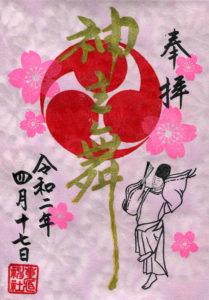 奉拝
神楽舞
令和二年
四月十七日